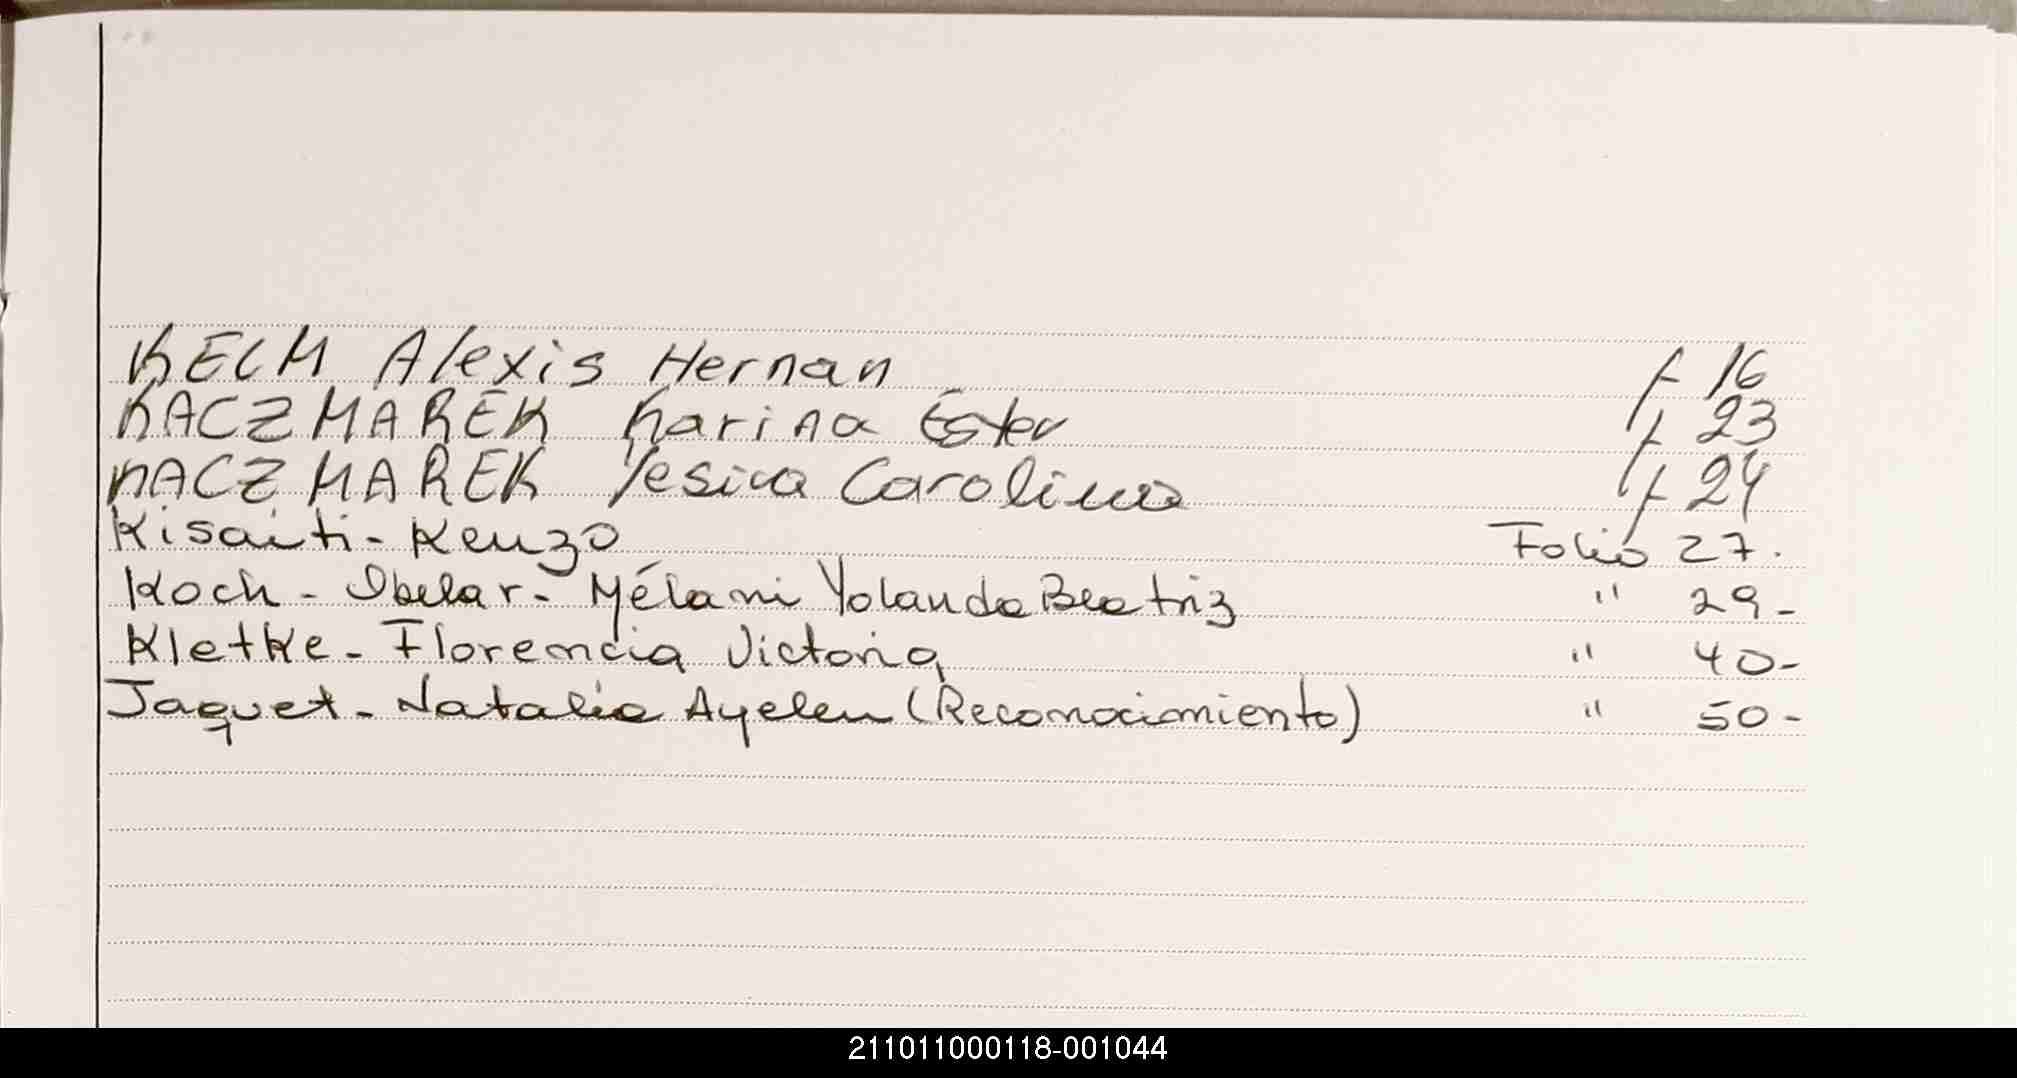 KELM Alexis Hernan f 16
KACZMAREK Karina Ester f 23
KACZMAREK Yesica Carolina f 24
Kisaiti - Kenzo Folio 27.
Koch - Obelar - Mélani Yolanda Beatriz " 29 -
Kletke - Florencia Victoria " 40 -
Jaquet - Natalia Ayelen (Reconocimiento) " 50 -
211011000118-001044